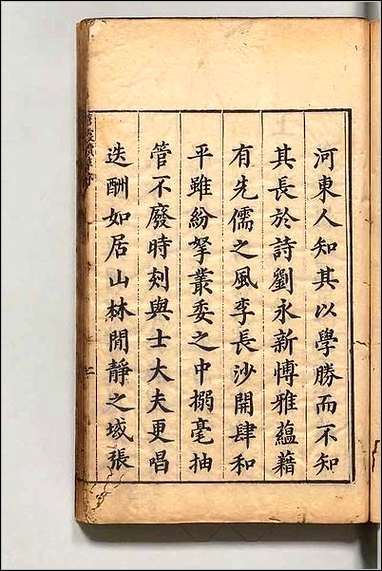 河東人知其以學勝而不知
其長於詩劉永新愽雅蘊藉
有先儒之風李長沙開肆和
平雖紛拏叢委之中搦毫抽
管不廢時刻與士大夫更唱
迭酬如居山林閒靜之域張
二